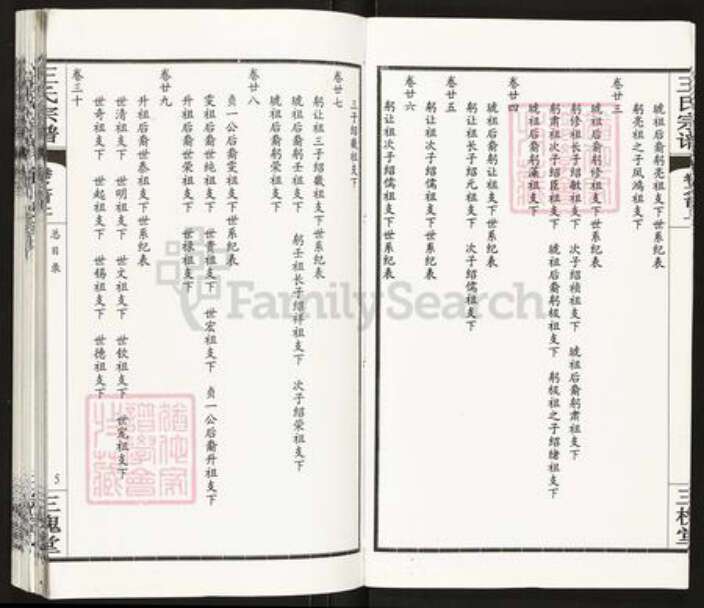 王氏宗譜
三槐堂
琥祖后裔躬亮祖支下世系紀表
躬亮祖之子凤鴻祖支下
卷廿三
琥祖后裔躬修祖支下世系紀表
躬修祖長子紹敏祖支下　次子紹禎祖支下　琥祖后裔躬肅祖支下
躬肅祖次子紹臣祖支下　琥祖后裔躬极祖支下　躬极祖之子紹緒祖支下
琥祖后裔躬藻祖支下
卷廿四
琥祖后裔躬让祖支下世系紀表
躬让祖長子紹元祖支下　次子紹儒祖支下
卷廿五
躬让祖次子紹儒祖支下世系紀表
卷廿六
躬让祖次子紹儒祖支下世系紀表
三子紹徽祖支下
卷廿七
躬让祖三子紹徽祖支下世系紀表
琥祖后裔躬壬祖支下　躬壬祖長子紹祥祖支下　次子紹荣祖支下
琥祖后裔躬荣祖支下
卷廿八
贞一公后裔雯祖支下世系紀表
雯祖后裔世纯祖支下　世贵祖支下　世宏祖支下　贞一公后裔升祖支下
升祖后裔世荣祖支下　世禄祖支下
卷廿九
升祖后裔世泰祖支下世系紀表
世清祖支下　世明祖支下　世文祖支下　世钦祖支下　世宽祖支下
世奇祖支下　世起祖支下　世锡祖支下　世德祖支下
卷三十
王氏宗譜
卷之首上
总目录
5
三槐堂
FamilySearch